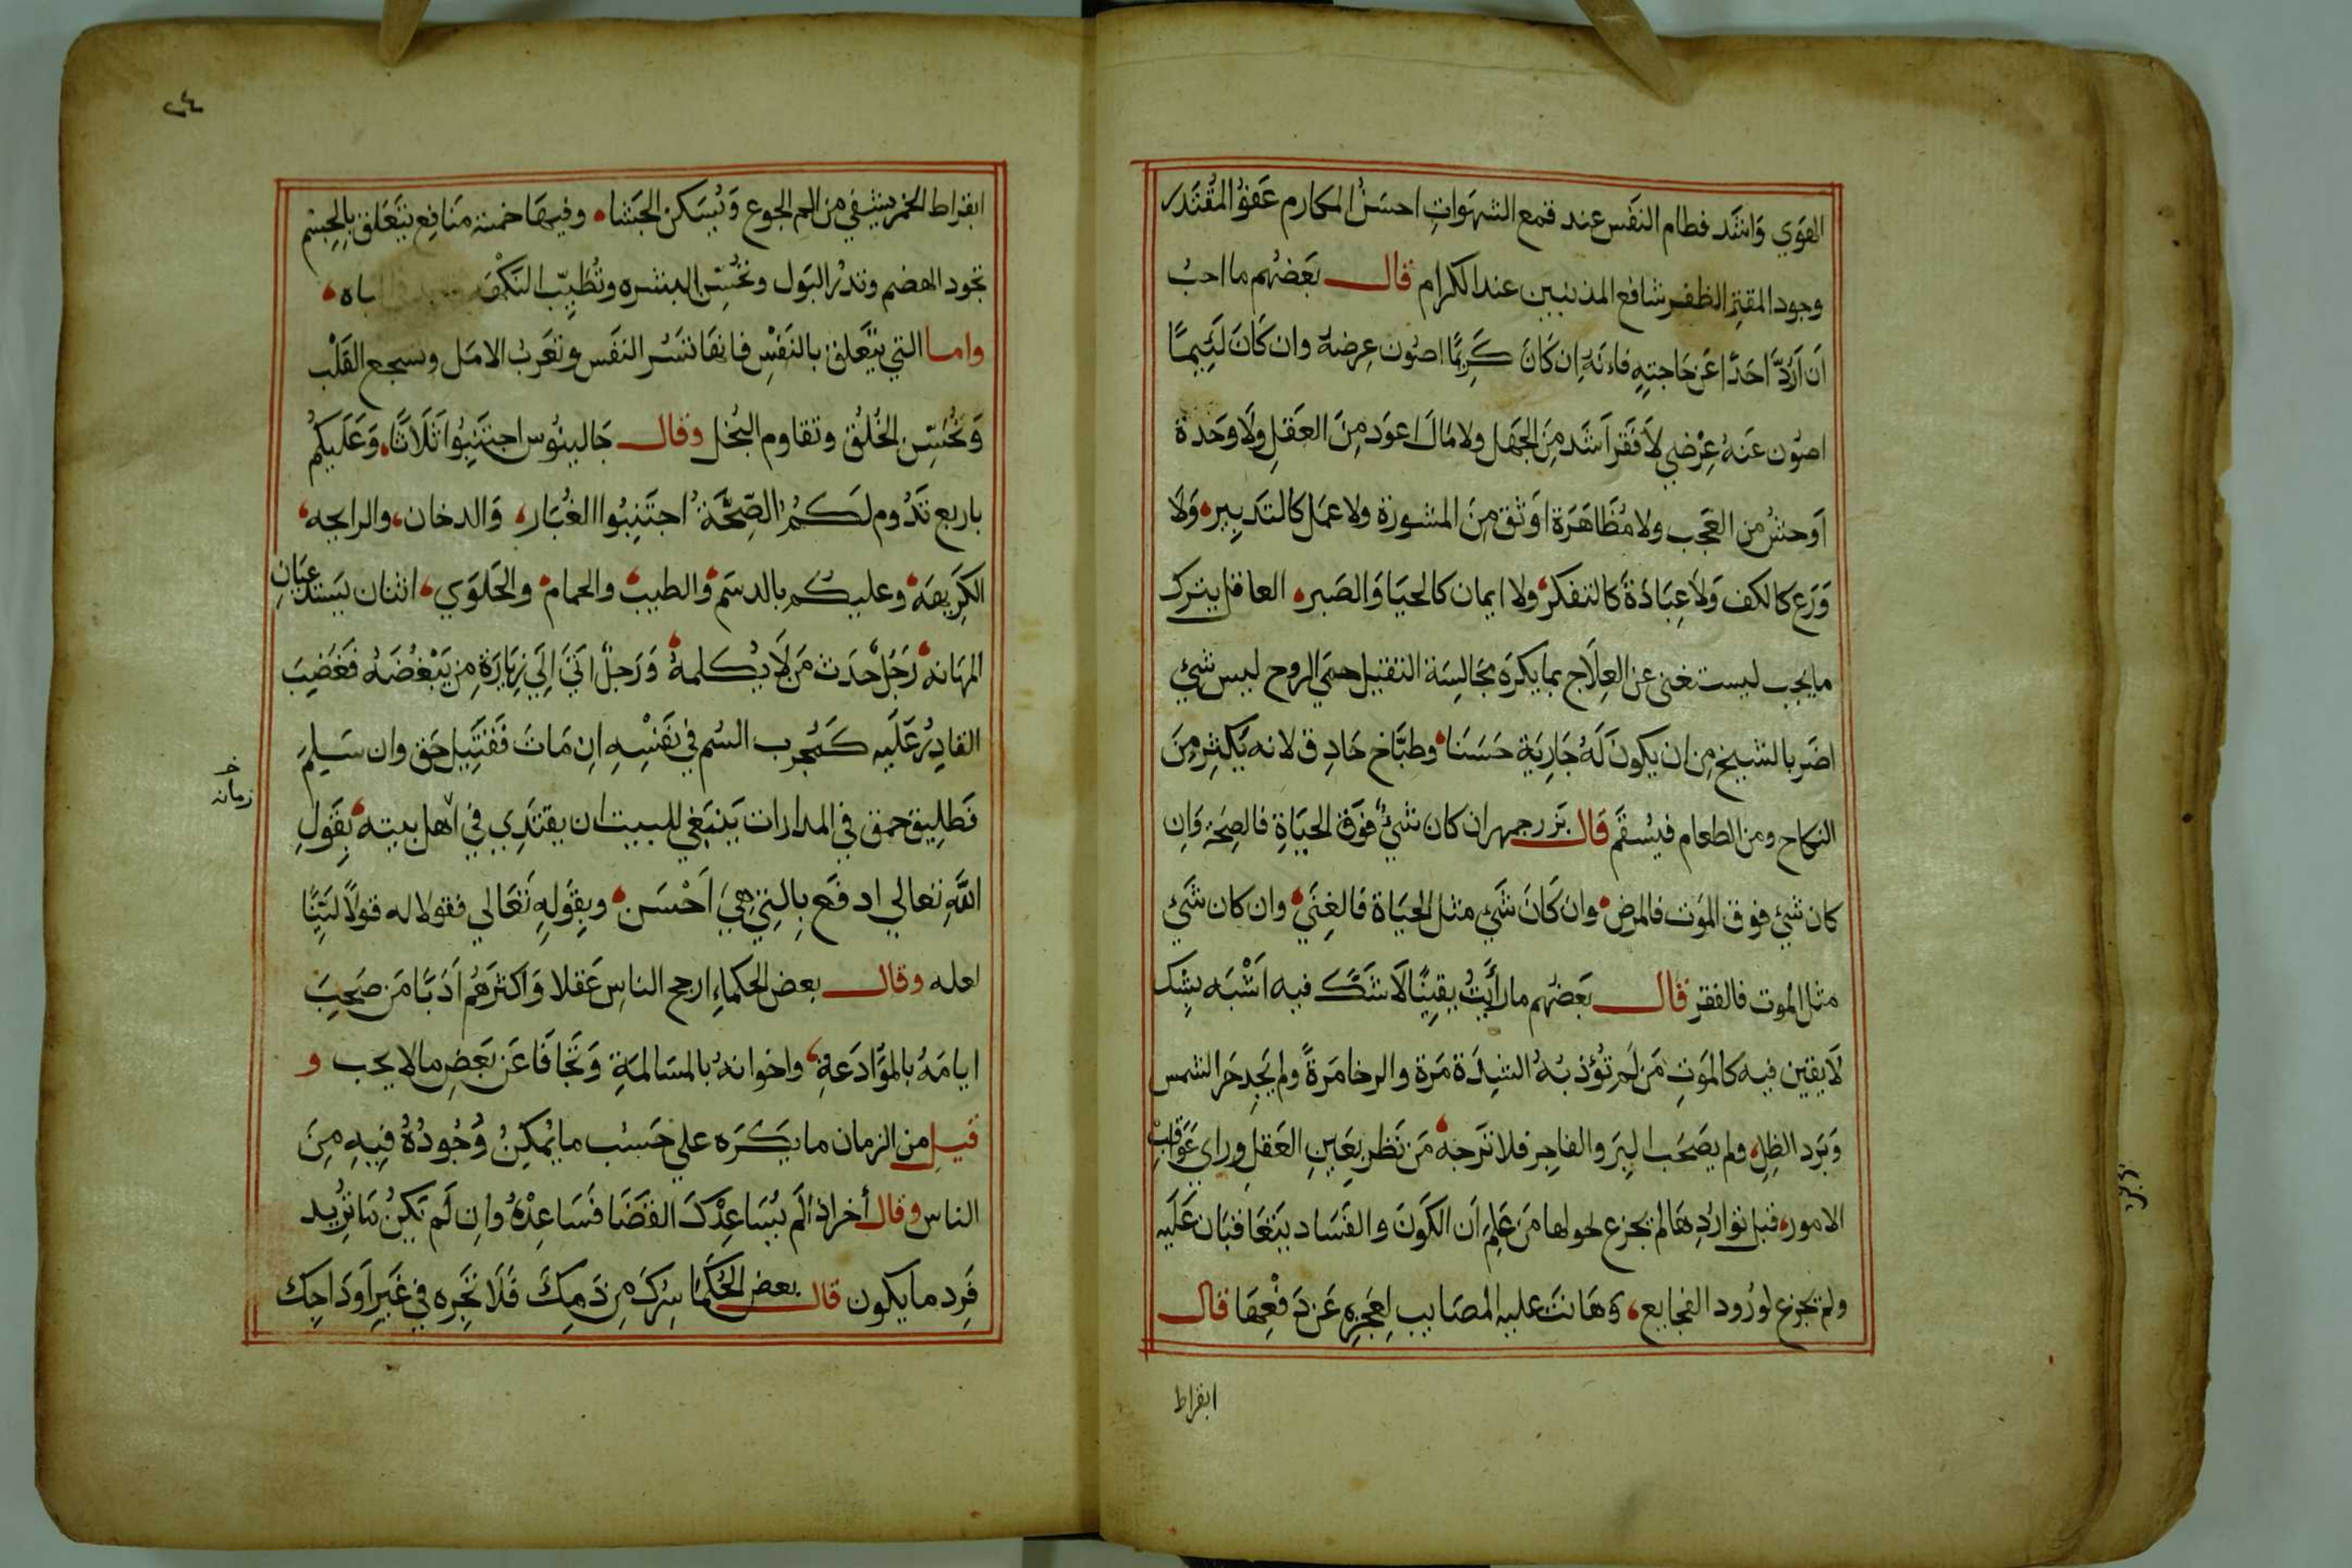 الهَوَي وَاشَد فطام النَفَس عند قمع الشهَواتِ احسَنُ المكارم عَفوُ المُقتَدر
وجود المقتِر الظفر شافع المذنبين عند الكرام قال بَعَضهُم ما احبُ
اَن اَرُدَّ اَحَدًا عَن حَاجتِهِ فاِنَهُ اِن كَانَ كَرِيمًا اصُون عِرضهُ وان كَانَ لَئِيمًا
اصُون عَنهُ عِرْضي لاَ فَقَر اَشَد مِنَ الجَهَل ولا مَال اَعوَد مِنَ العَقلِ وَلَا وَحَدة
اَوحَشُ من العَجب ولا مُظَاهَرَة اوَثق مِنَ المشورَة ولا عمَل كالتَدبِيرِ وَلَا
وَرَع كالكف وَلَا عِبَادَةً كالتفكر ولا ايمان كالحيَا وَالصَبرِ العاقل يترك
مايجب ليستغنى عن العِلَاج بما يكرَه مجَالسَة الثقيل حمي الروح ليس شَيْ
اضَر بالشيخ مِن ان يكون لَهُ جَارِيَة حَسَنا وطبَّاخ حَاذِق لانه يَكثِر مِنَ
النكاح ومن الطعام فيسُقَم قال بَزرجمهر ان كان شَيْ فَوَق الحيَاةِ فالصِحَة وَاِن
كان شَيْ فوق الموَت فالمرض وان كَانَ شَيْ مثل الحيَاة فَالغِنَي وان كان شَيْ
مثل الموت فالفقر قال بَعَضهُم ما رأَيَتُ يقينًا لاَ شَكَّ فيه اَشْبَه بِشِك
لاَ يقين فيه كالموَتِ مَن لَم تُؤذبهُ الشِدَة مَرة والرخا مَرةً ولم يَجِد حَر الشمس
وَبَرَد الظِلِ ولم يصَحَب البِرَ والفاجِر فلا تَرجهُ مَن نَظر بِعَينِ العَقلِ وراي عَوَاقِبِ
الامور قبل تَوارُدِهَا لم يجزع لحولها مَن عَلِمَ اَن الكَونَ والفَسَاد يَتَعَاقبَان عَلَيه
ولم يجزع لورُود الفجايع وَهَانَت عليه المصَايب لِعَجَزِهِ عَن دَفْعِهَا قال
ابقراط
٢٤
ابقراط الخمر يشفي من الم الجوع وَيُسَكن الجَشا وفيهَا خمسة مَنَافِع يَتَعَلق بالجِسْم
تجود الهضم وتدرُ البَول وتحُسِّن البشره وتُطَيِّب النَكْهَة
واما التي يتَّعَلق بالنَفْسِ فانهَا تَسُر النَفَس وتقَرب الامَل وتسجع القَلْب
وَتُحُسِّن الخُلُق وتقاوم البُخل وقال جَالينُوس اجتَنِبُوا ثَلَاثًا وَعَلَيكُم
باربع تَدُوم لَكُمُ الصِحَّةُ اجتَنِبُوا الغُبَار وَالدخان والرايحه
الكَرِيهَة وعليكم بالدسَم والطيب والحمام والحَلوَي اثنان يَستَدْعِيَانِ
المهَانه رَجُل حَدَث مَن لَا يُكلمهُ وَرَجلٌ اتَي اِلَي زِيَارَةِ مِن يَبْغُضَهُ فَغَضِبَ
القادِرُ عَلَيه كَمُجَرب السُم في نَفْسِهِ اِن مَاتَ فَقَتِيل حَق وان سَلِمَ
خـ زمانه
فَطَلِيق حمق في المدارات يَنبَغي للبيت ان يقتَدِي في اهل بيته بقَولِ
اللَّه تعالي ادفَع بِالتِي هِيَ اَحْسَن وبقَولِهِ تَعَالي فقولا له قولاً لَيِّنًا
لعله وقال بعض الحكماءِ ارجح الناس عَقلا وَاكثرَهُم اَدَبًا مَن صَحِبَ
ايامَهُ بالموَّادَعةِ واخوانهُ بالمسَالمَةِ وَتَجَافَا عَن بَعضِ مالا يجب و
قيل من الزمان ما يَكرَه علي حَسَب ما يُمكِنُ وُجُودُهُ فِيهِ مِنَ
الناس وقال أخر اذا لَم يُسَاعِدْكَ القضَا فَسَاعِدْهُ وان لَم يَكُن مَا تُرِيد
فَرِد ما يكون قال بعض الحُكمَا سِرُكَ مِن دَمِكَ فَلَا تَجُرِه في غَيرِ اَودَاجِك